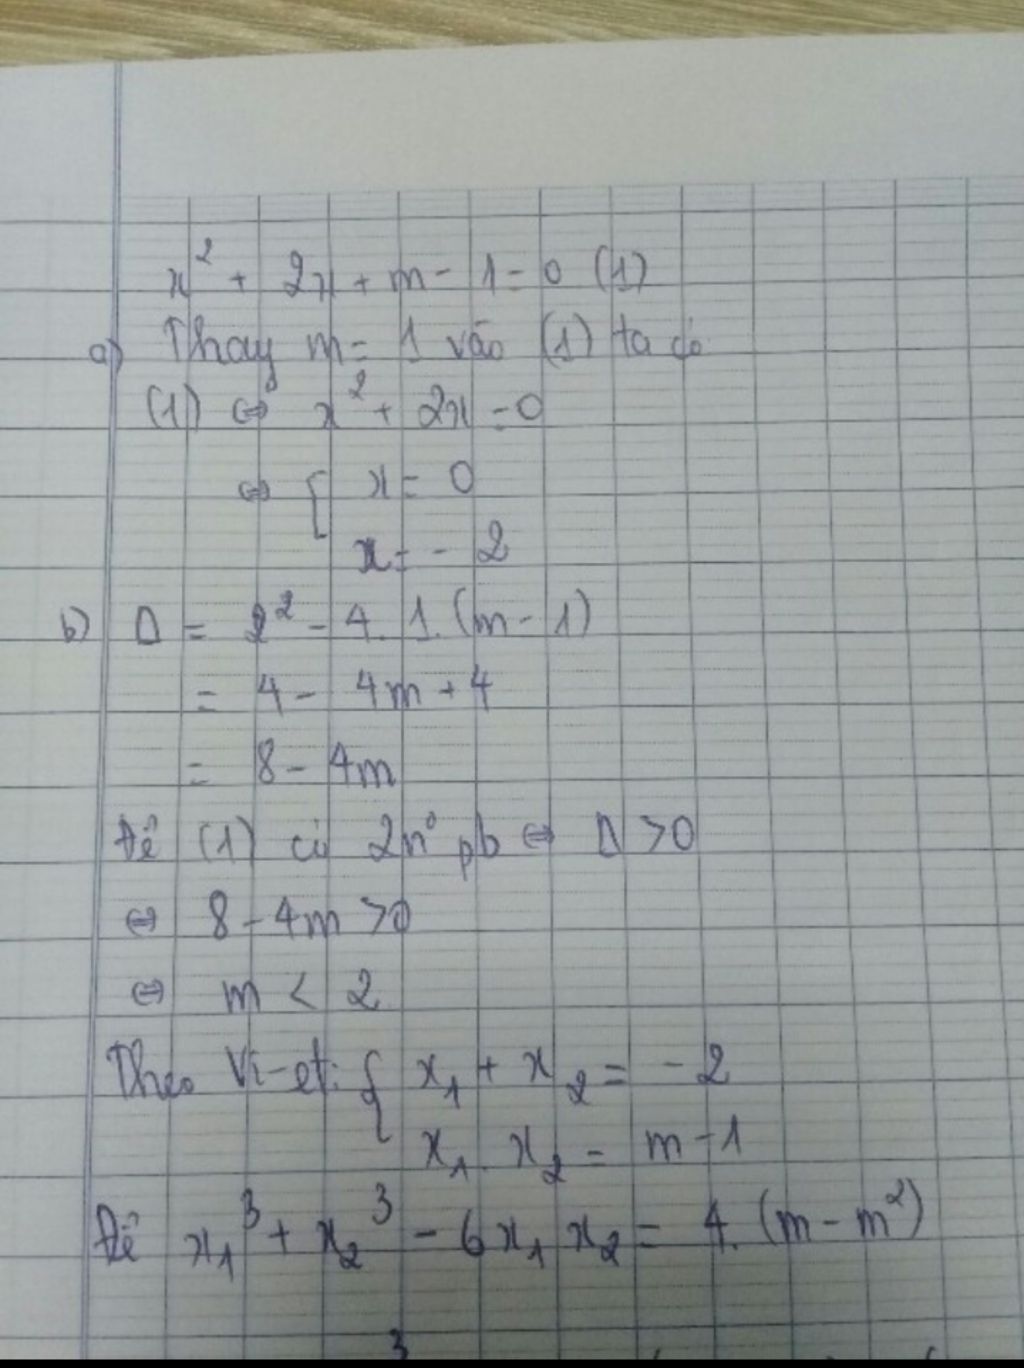 x² + 2x + m - 1 = 0 (1)
a) Thay m = 1 vào (1) ta có
(1) ⇔ x² + 2x = 0
⇔ [ x = 0
x = - 2
b) Δ = 2² - 4. 1. (m - 1)
= 4 - 4m + 4
= 8 - 4m
Để (1) có 2n⁰ pb ⇔ Δ > 0
⇔ 8 - 4m > 0
⇔ m < 2
Theo Vi-et: { x₁ + x₂ = - 2
x₁. x₂ = m - 1
Để x₁³ + x₂³ - 6x₁ x₂ = 4. (m - m²)
3